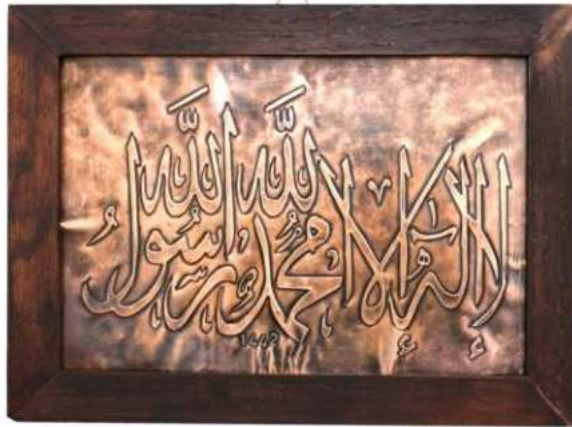 لا إله إلا الله محمد رسول الله
1442